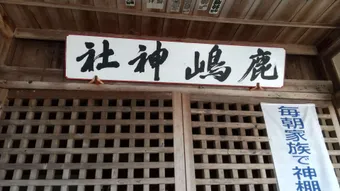 鹿嶋神社
毎朝家族で神棚